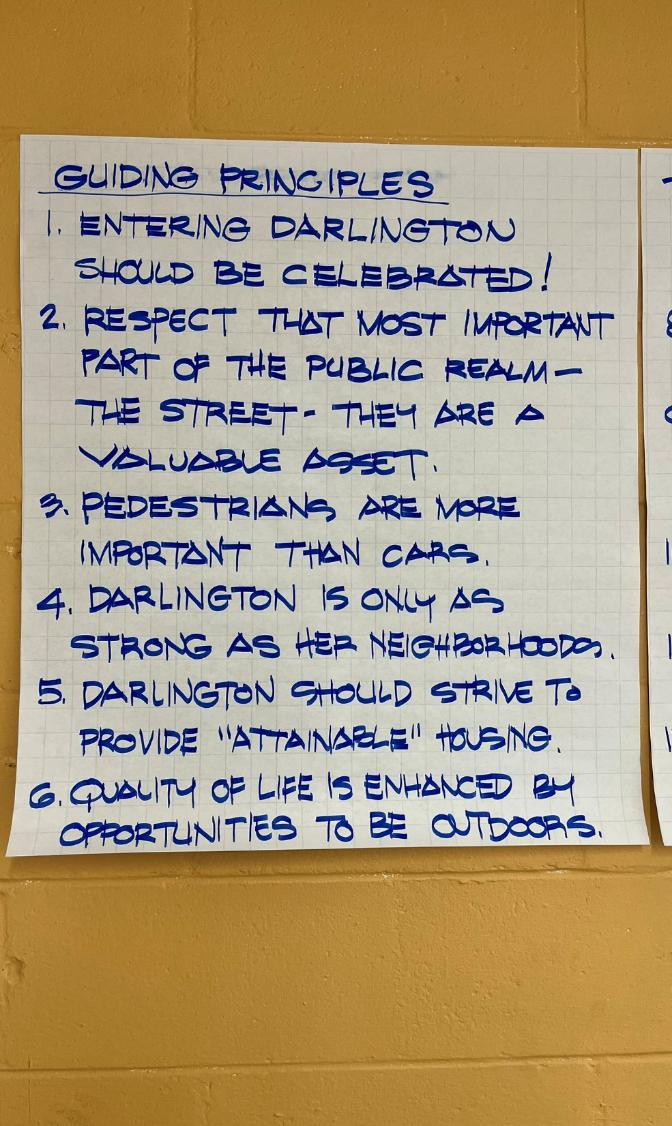 GUIDING PRINCIPLES
1. ENTERING DARLINGTON
SHOULD BE CELEBRATED!
2. RESPECT THAT MOST IMPORTANT
PART OF THE PUBLIC REALM—
THE STREET- THEY ARE A
VALUABLE ASSET.
3. PEDESTRIANS ARE MORE
IMPORTANT THAN CARS.
4. DARLINGTON IS ONLY AS
STRONG AS HER NEIGHBORHOODS.
5. DARLINGTON SHOULD STRIVE TO
PROVIDE "ATTAINABLE" HOUSING.
6. QUALITY OF LIFE IS ENHANCED BY
OPPORTUNITIES TO BE OUTDOORS.